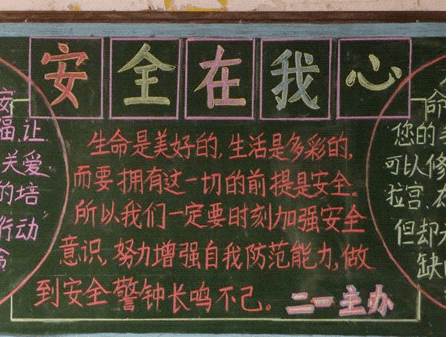 安全在我心
生命是美好的,生活是多彩的,
而要拥有这一切的前提是安全.
所以我们一定要时刻加强安全
意识,努力增强自我防范能力,做
到安全警钟长鸣不己。
二一主办
安
福,让
关爱
的培
行动
命
您的
可以修
拉宫,
但却
缺